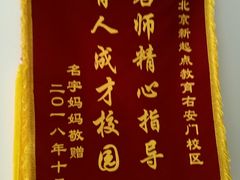 北京新起点教育右安门校区
名师精心指导
育人成才校园
名字妈妈敬赠
二〇一八年十